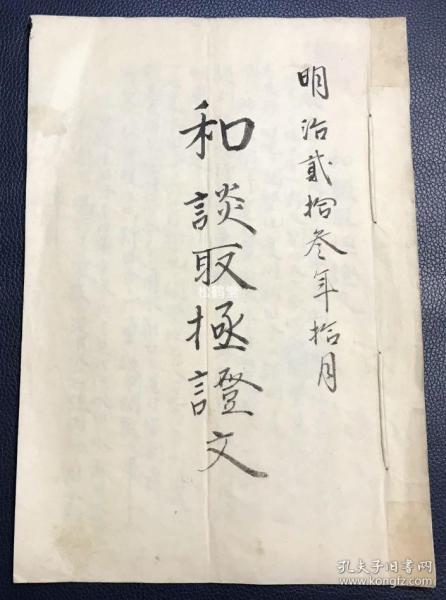 明治貳拾叁年拾月
和談取極證文
孔夫子旧书网
www.kongfz.com